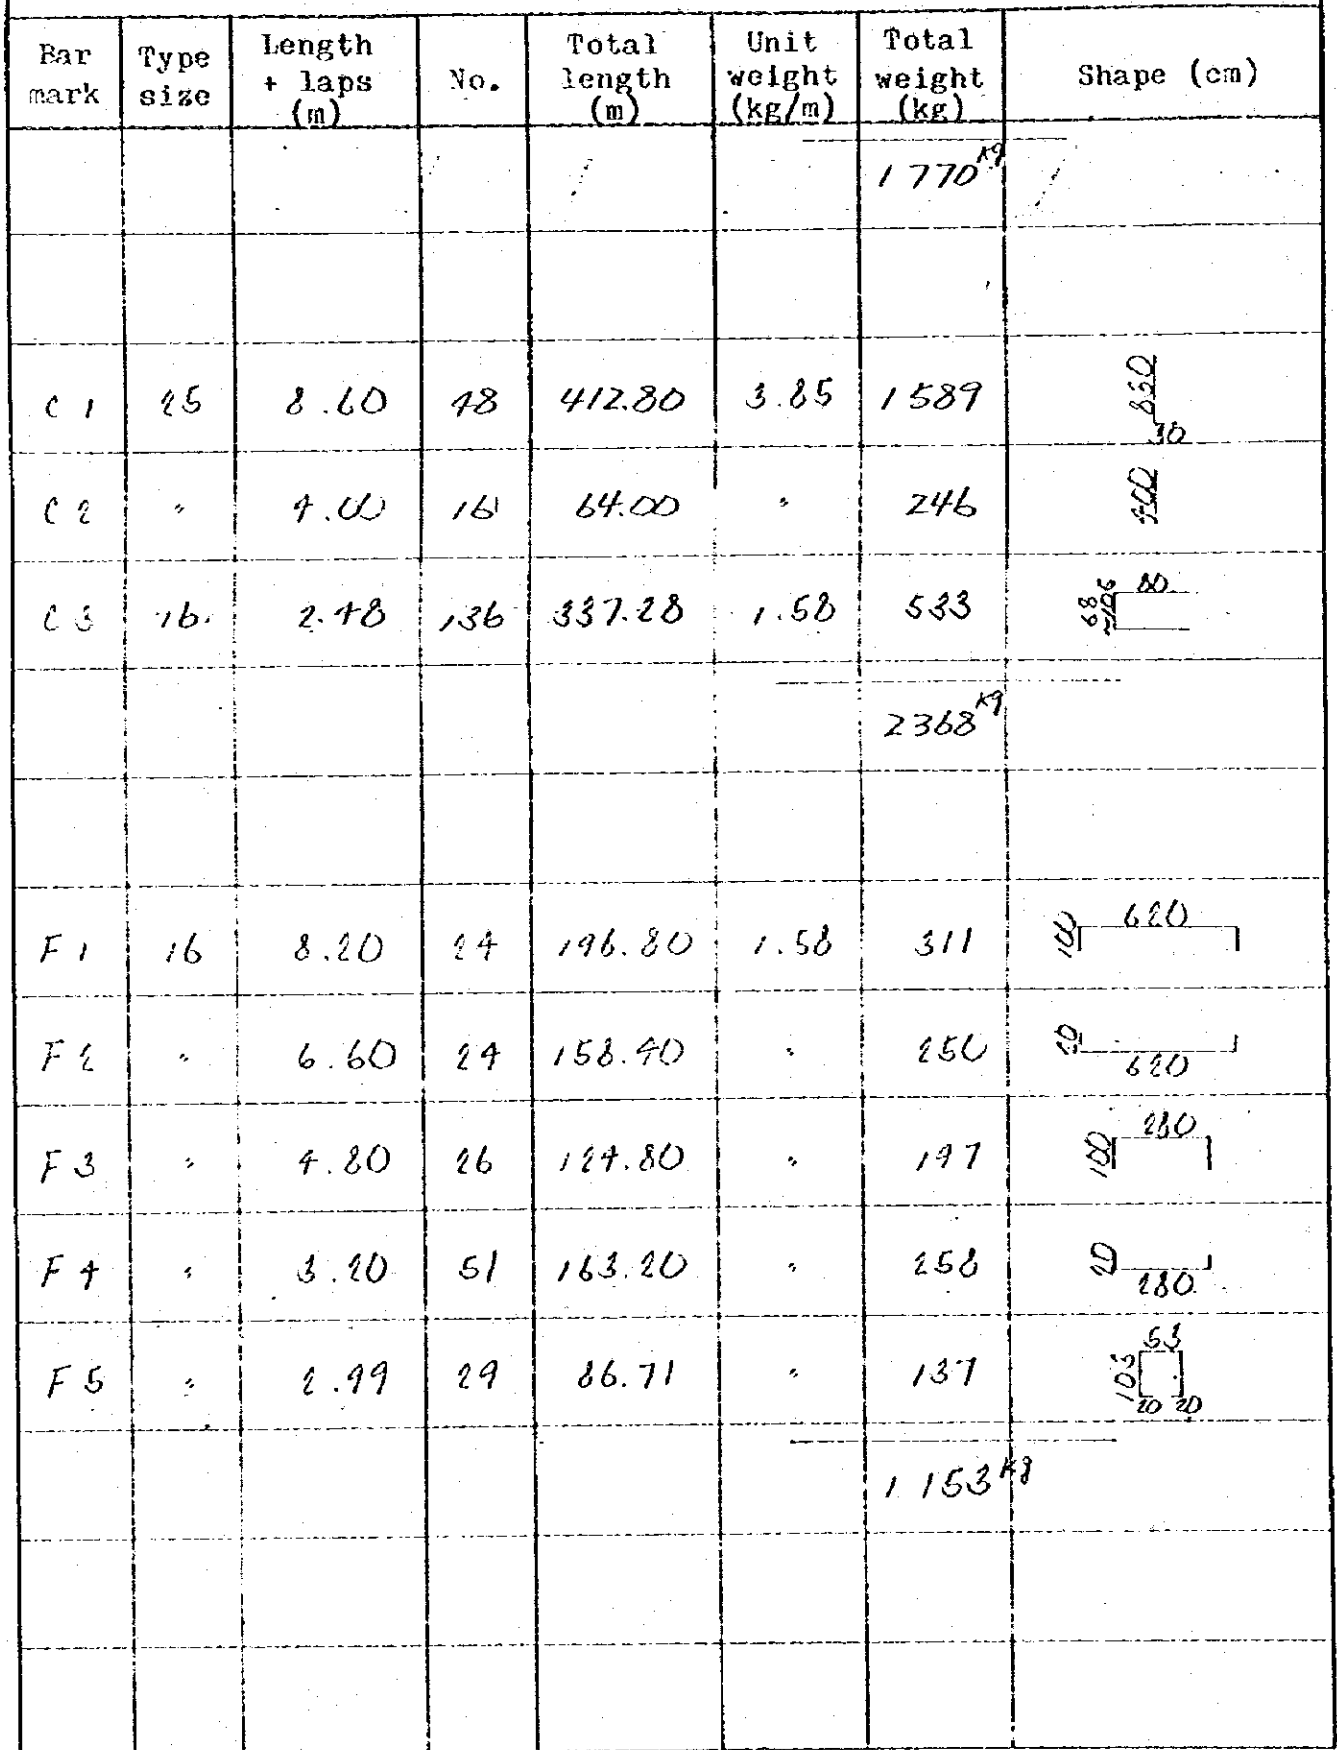 Bar mark | Type size | Length + laps (m) | No. | Total length (m) | Unit weight (kg/m) | Total weight (kg) | Shape (cm)
1770 kg
C 1 | 25 | 8.60 | 48 | 412.80 | 3.85 | 1589 | 830 30
C 2 | " | 4.00 | 16 | 64.00 | " | 246 | 400
C 3 | 16 | 2.48 | 136 | 337.28 | 1.58 | 533 | 68 ~106 80
2368 kg
F 1 | 16 | 8.20 | 24 | 196.80 | 1.58 | 311 | 100 620
F 2 | " | 6.60 | 24 | 158.40 | " | 250 | 20 620
F 3 | " | 4.80 | 26 | 124.80 | " | 197 | 100 280
F 4 | " | 3.20 | 51 | 163.20 | " | 258 | 20 280
F 5 | " | 2.99 | 29 | 86.71 | " | 137 | 103 53 20 20
1 153 kg